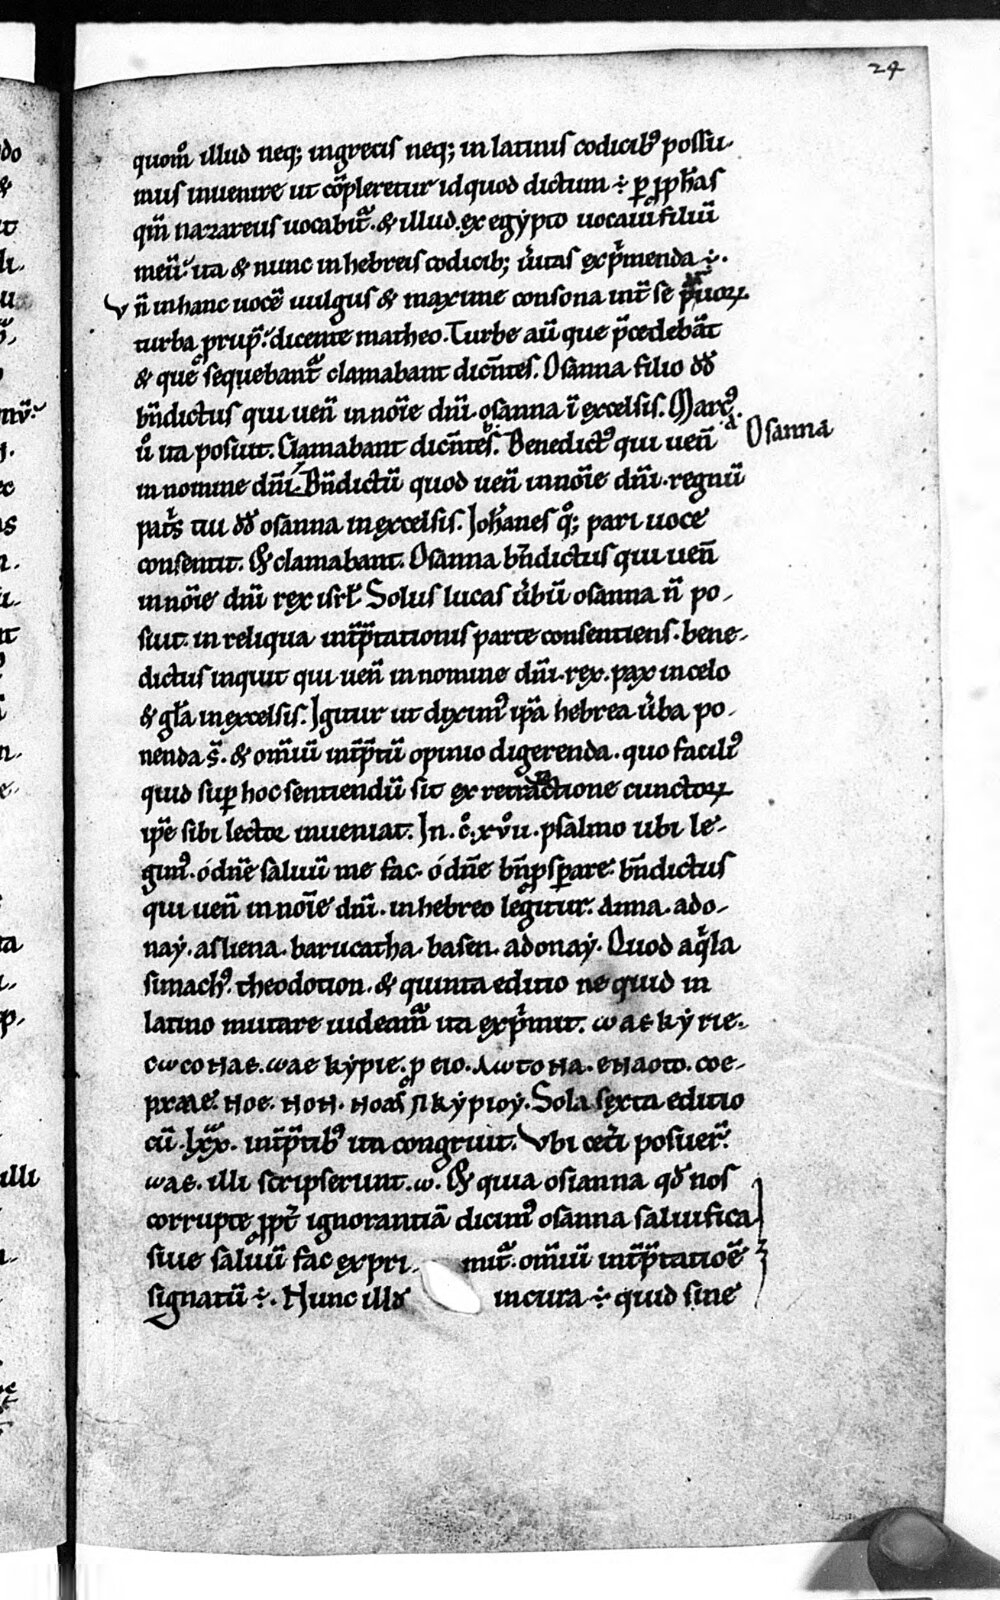 24
quom̊ illud neq; ingrecis neq; in latinis codicib; possu-
mus inuenire ut cōpleretur id quod dictum ÷ p̱ p̱phās
qm̄ nazareus uocabit̄. & illud. ex egẏpto uocaui filiū
meū. ita & nunc in hebreis codicib; ueritas exp̄menda ÷.
Vn̄ in hanc uocē uulgus & maxime consona int̄ se p̄uoꝝ
turba p̱rup̄. dicente matheo. Turbe aū que p̄cedebāt
& que sequebant̄ clamabant dicn̄tes. Osanna filio dd̄
bn̄dictus qui uen̄ in noīe dnī. osanna ī excelsis. Marc⁹
u̇ ita posuit. Clamabant dicn̄tes. Benedict⁹ qui uen̄
Osanna
in nomine dnī. Bn̄dictū quod uen̄ in noīe dnī. regnū
pat̄s tui dd̄ osanna in excelsis. Ioh̄anes q̊; pari uoce
consentit. & clamabant. Osanna bn̄dictus qui uen̄
in noīe dnī rex isrł. Solus lucas u̇bū osanna n̄ po-
suit. in reliqua int̄p̄tationis parte consentiens. bene-
dictus inquit qui uen̄ in nomine dnī. rex. pax in celo
& gła in excelsis. Igitur ut diximˀ ip̄a hebrea u̇ba po-
nenda s̄. & om̄iū int̄p̄tū opinio digerenda. quo faciliˀ
quid sup̱ hoc sentiendū sit ex retractione cunctoꝝ
ip̄e sibi lector inueniat. In. c̊. xvıı̊. psalmo ubi le-
gimˀ. ó dn̄e saluū me fac. ó dn̄e bn̄ p̱sp̱are. bn̄dictus
qui uen̄ in noīe dnī. in hebreo legitur. anna. ado-
naẏ. asliena. barucatha. basen. adonaẏ. Quod aq̇la
simachˀ. theodotion. & quinta editio ne quid in
latino mutare uideam̄ ita exp̄mit. ωae kẏrie.
cωco nae. ωae kẏpie. p̱ eio. λωto na. enaoto. coe-
Sola sexta editio
cū. lxx̄. int̄p̄tibˀ ita congruit. Vbi cet̄i posuer̄.
ωae. illi scripserunt. ω. & quia osianna qđ nos
corrupte p̱pt̄ ignorantiā dicimˀ osanna saluifica
siue saluū fac expri- mit̄. om̄iū int̄p̄tatioē
signatū ÷. Nunc illđ in cura ÷ quid sine